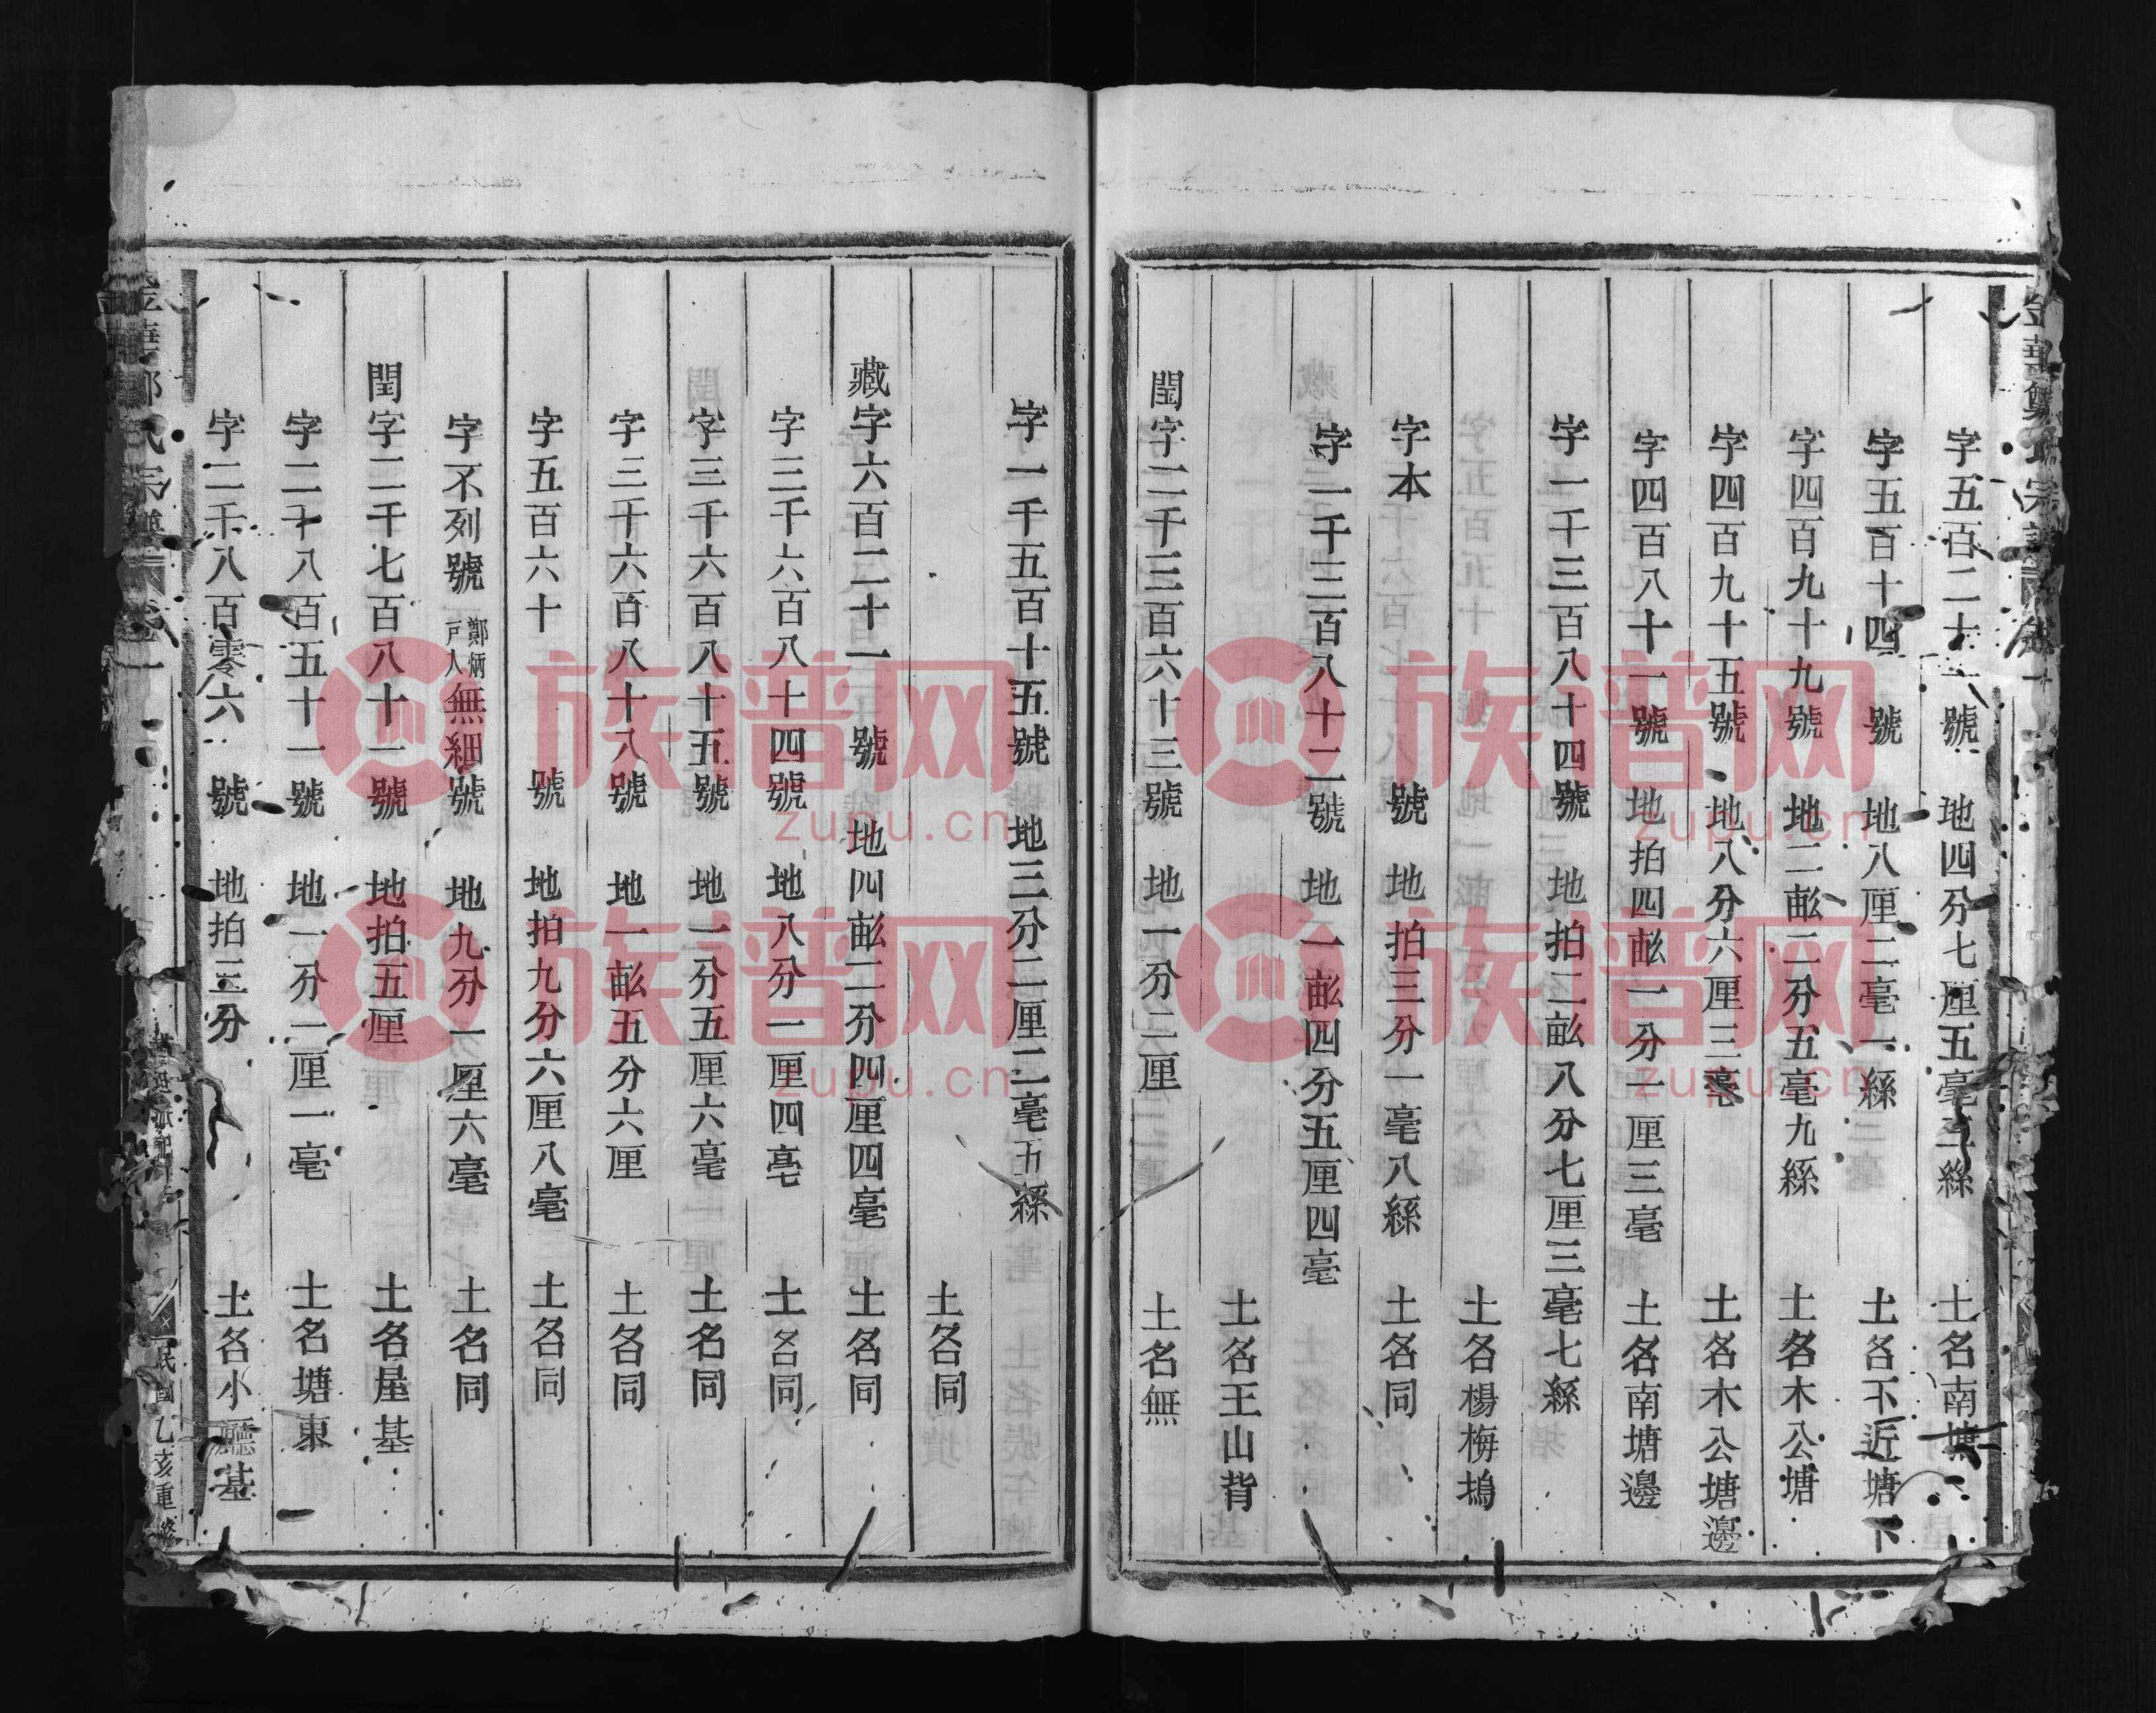 字五百二十二號 地四分七厘五毫三絲 土名南塘
字五百十四號 地八厘二毫一絲 土名下近塘下
字四百九十九號 地二畝二分五毫九絲 土名木公塘
字四百九十五號 地八分六厘三毫 土名木公塘邊
字四百八十一號 地拍四畝一分一厘三毫 土名南塘邊
字一千三百八十四號 地拍二畝八分七厘三毫七絲
土名楊梅塢
字本 號 地拍三分一毫八絲 土名同
字一千三百八十二號 地一畝四分五厘四毫
土名王山背
閏字二千三百六十三號 地一分二厘 土名無
字一千五百十五號 地三分二厘二毫五絲
土名同
藏字六百二十一號 地四畝二分四厘四毫 土名同
字三千六百八十四號 地八分一厘四毫 土名同
字三千六百八十五號 地一分五厘六毫 土名同
字三千六百八十八號 地一畝五分六厘 土名同
字五百六十 號 地拍九分六厘八毫 土名同
字不列號 鄭炳戶人 無細號 地九分一厘六毫 土名同
閏字二千七百八十一號 地拍五厘 土名屋基
字二千八百五十一號 地一分一厘一毫 土名塘東
字二千八百零六號 地拍三分 土名小廳基
氏宗譜 卷一
民國乙亥重修
族谱网
zupu.cn
族谱网
zupu.cn
族谱网
zupu.cn
族谱网
zupu.cn